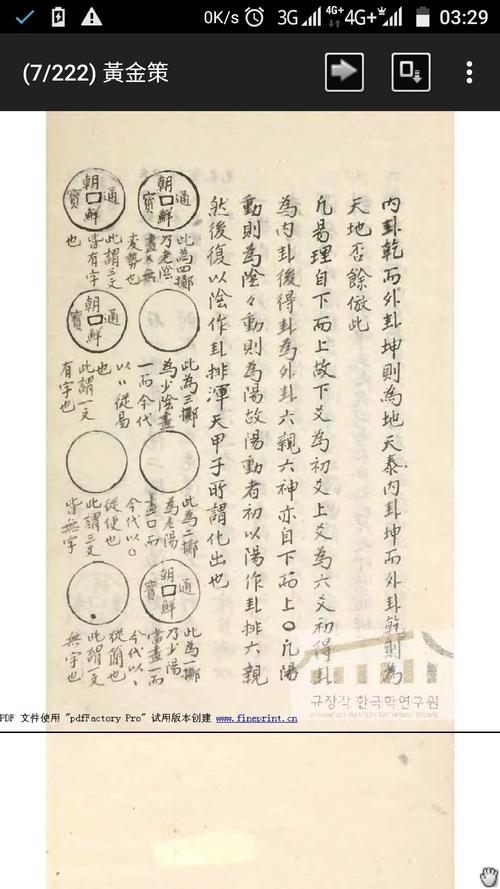 0K/s 3G 4G+ 4G+ 03:29
(7/222) 黃金策
內卦乾而外卦坤則為地天泰內卦坤而外卦乾則為
天地否餘倣此
凡易理自下而上故下爻為初爻上爻為六爻初得卦
為內卦後得卦為外卦六親六神亦自下而上〇凡陽
動則為陰々動則為陽故陽動者初以陽作卦排六親
然後復以陰作卦排渾天甲子所謂化出也
朝鮮通寶
朝鮮通寶
此為四擲
乃老陰
畫×無
変勢也
此謂三文
皆有字
也
朝鮮通寶
此為三擲
為少陰畫
一而今代
以〃從易
也
此謂一文
有字也
此為二擲
為老陽
畫口而
今代以〇
從便也
此謂三文
皆無字
朝鮮通寶
此為一擲
乃少陽
當畫一而
今代以丶
從簡也
此謂一文
無字也
규장각한국학연구원
PDF 文件使用 "pdfFactory Pro" 试用版本创建 www.fineprint.cn